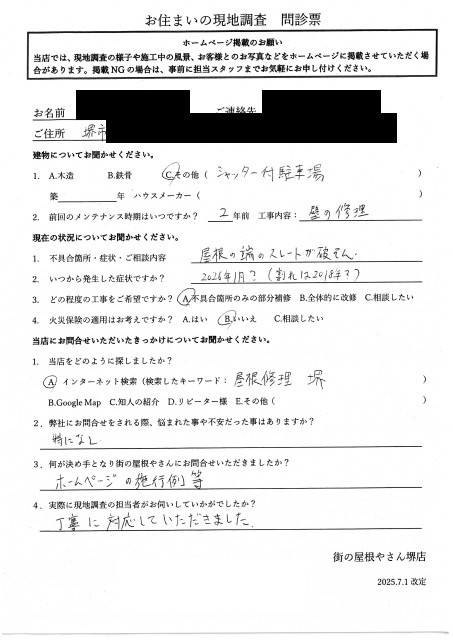 お住まいの現地調査 問診票
ホームページ掲載のお願い
当店では、現地調査の様子や施工中の風景、お客様とのお写真などをホームページに掲載させていただく場
合があります。掲載NGの場合は、事前に担当スタッフまでお気軽にお申し付けください。
お名前 ご連絡先
ご住所 堺市
建物についてお聞かせください。
1. A.木造 B.鉄骨 C.その他( シャッター付駐車場 )
築 年 ハウスメーカー( )
2. 前回のメンテナンス時期はいつですか? 2 年前 工事内容: 壁の修理
現在の状況についてお聞かせください。
1. 不具合箇所・症状・ご相談内容 屋根の端のスレートが破そん.
2. いつから発生した症状ですか? 2026年1月?(割れは2018年?)
3. どの程度の工事をご希望ですか? A.不具合箇所のみの部分補修 B.全体的に改修 C.相談したい
4. 火災保険の適用はお考えですか? A.はい B.いいえ C.相談したい
当店にお問合せいただいたきっかけについてお聞かせください。
1. 当店をどのように探しましたか?
A インターネット検索(検索したキーワード: 屋根修理 堺 )
B.Google Map C.知人の紹介 D.リピーター様 E.その他( )
2. 弊社にお問合せをされる際、悩まれた事や不安だった事はありますか?
特になし.
3. 何が決め手となり街の屋根やさんにお問合せいただきましたか?
ホームページの施行例等
4. 実際に現地調査の担当者がお伺いしていかがでしたか?
丁寧に対応していただきました.
街の屋根やさん堺店
2025.7.1 改定